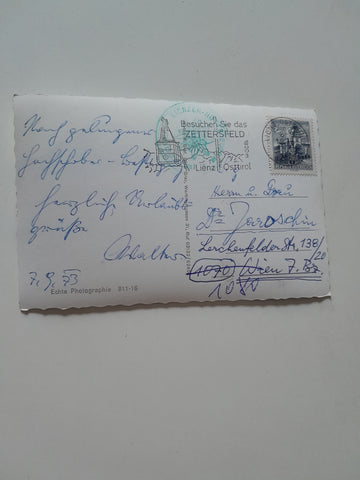 Nach gelungener
Hochschober-Besteigung
herzliche Urlaubs-
grüße
Walter
7. 9. 73
Echte Photographie 811-16
Besuchen Sie das
ZETTERSFELD
Lienz Osttirol
Herrn u. Frau
Dr. Jaroschin
Lerchenfelder Str. 138/20
1070 Wien 7. Bz.
1080